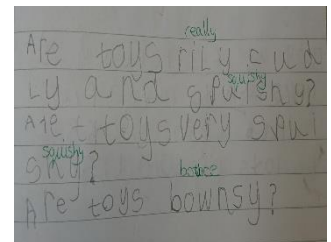 really
Are toys rily cud
squishy
Ly and spuishy?
Are toys very spui
squishy
shy?
bounce
Are toys bownsy?